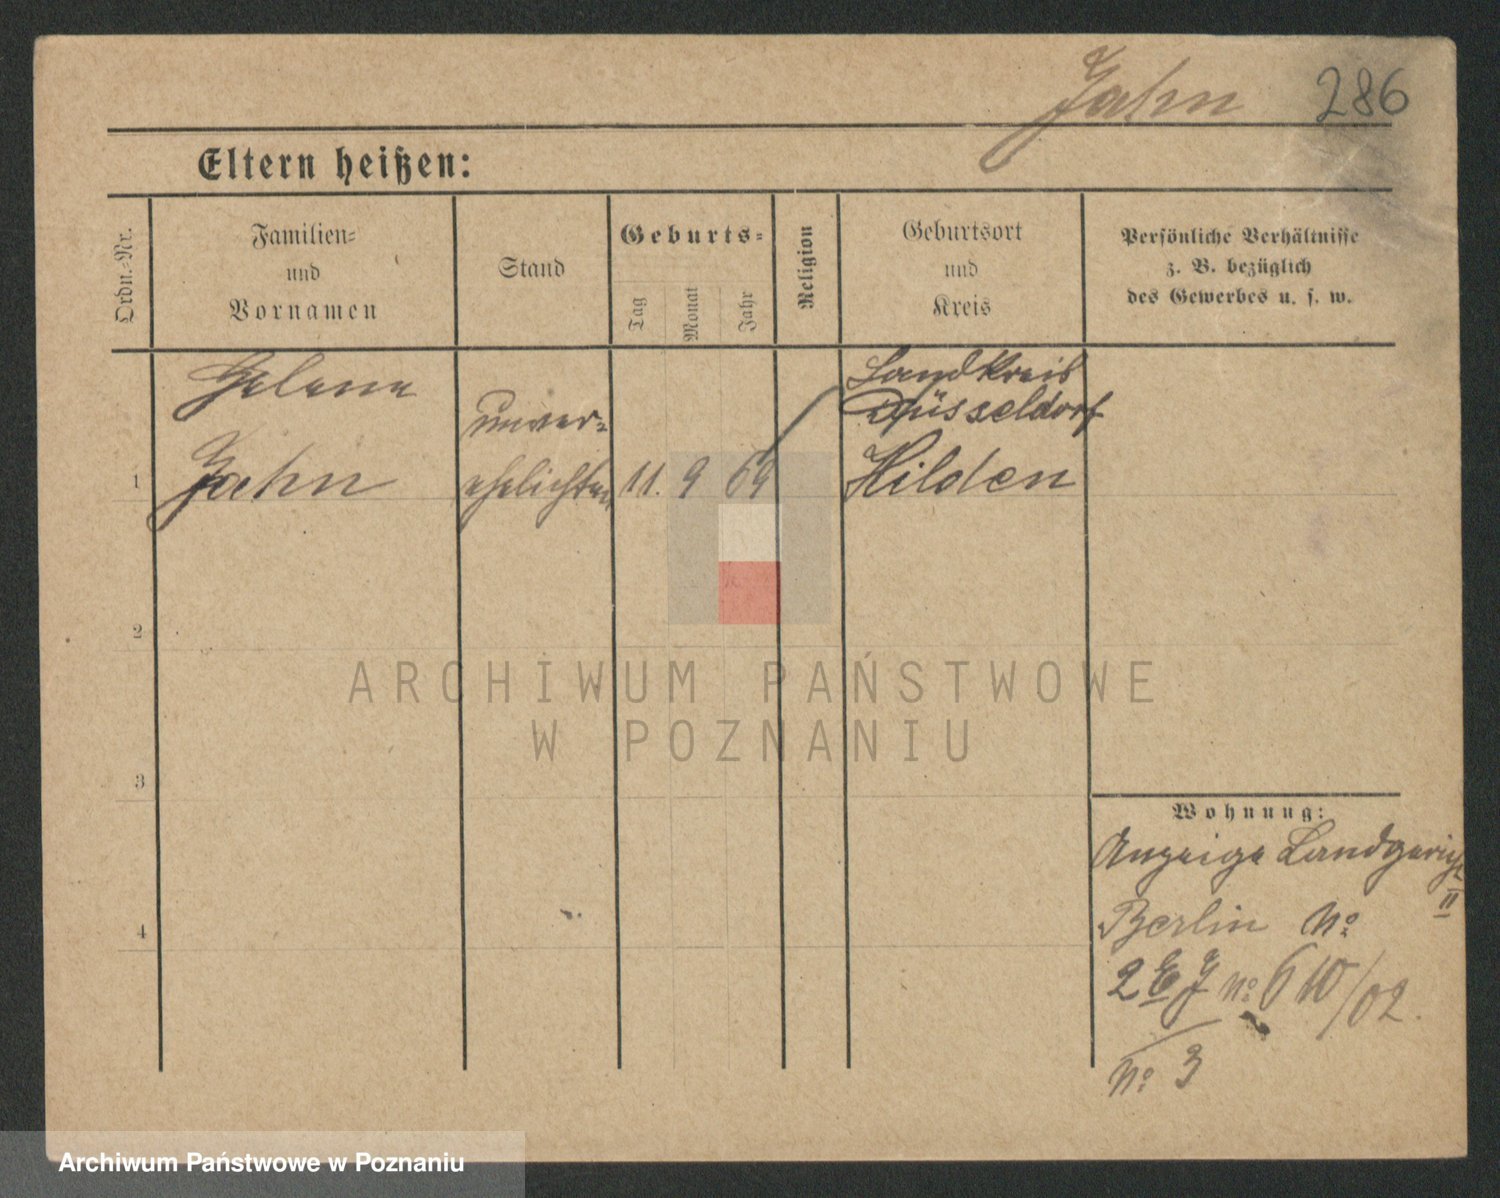 Jahn 286
Eltern heißen:
Ordn.-Nr.
Familien-
und
Vornamen
Stand
Geburts-
Tag
Monat
Jahr
Religion
Geburtsort
und
Kreis
Persönliche Verhältnisse
z. B. bezüglich
des Gewerbes u. s. w.
Helene
Jahn
unver-
ehelichten
1
11. 9 69
Landkreis
Düsseldorf
Hilden
2
3
4
Wohnung:
Anzeige Landgericht
II
Berlin No
2 J No 610/02.
No 3
ARCHIWUM PAŃSTWOWE
W POZNANIU
Archiwum Państwowe w Poznaniu